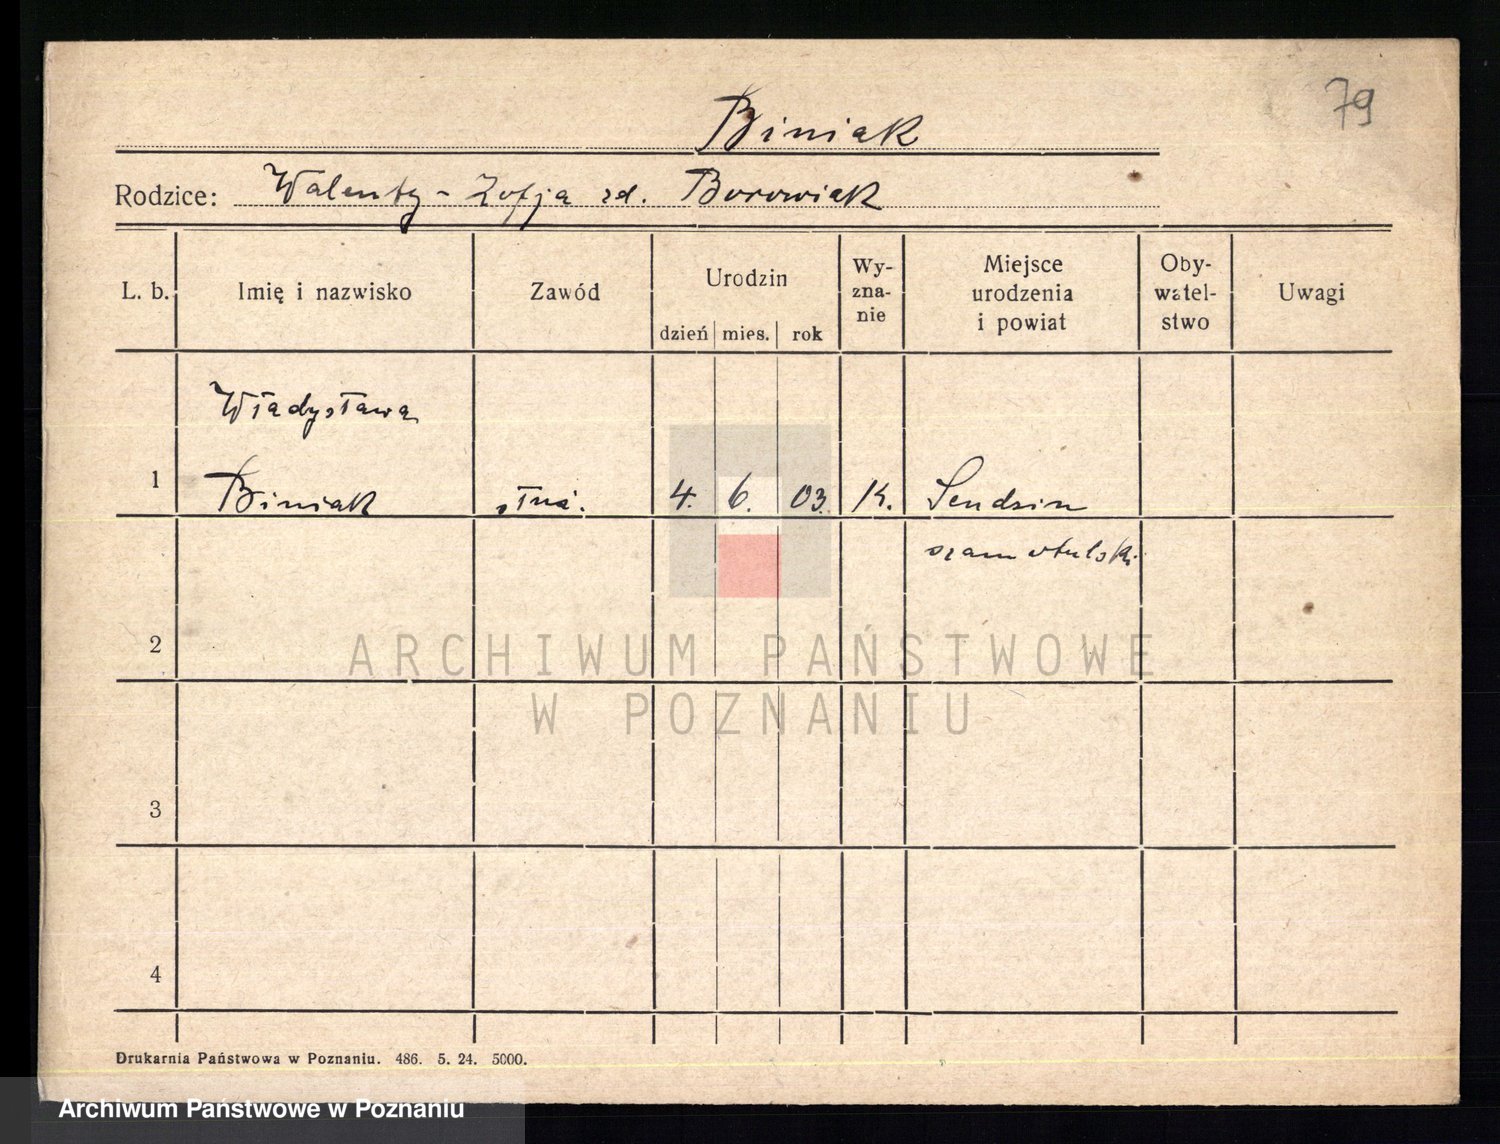 79
Biniak
Rodzice: Walenty - Zofja zd. Borowiak
L. b. Imię i nazwisko Zawód Urodzin dzień mies. rok Wy-zna-nie Miejsce urodzenia i powiat Oby-watel-stwo Uwagi
Władysława
1 Biniak służ. 4. 6. 03. K. Sendzin
szamotulski
2
ARCHIWUM PAŃSTWOWE
W POZNANIU
3
4
Drukarnia Państwowa w Poznaniu. 486. 5. 24. 5000.
Archiwum Państwowe w Poznaniu